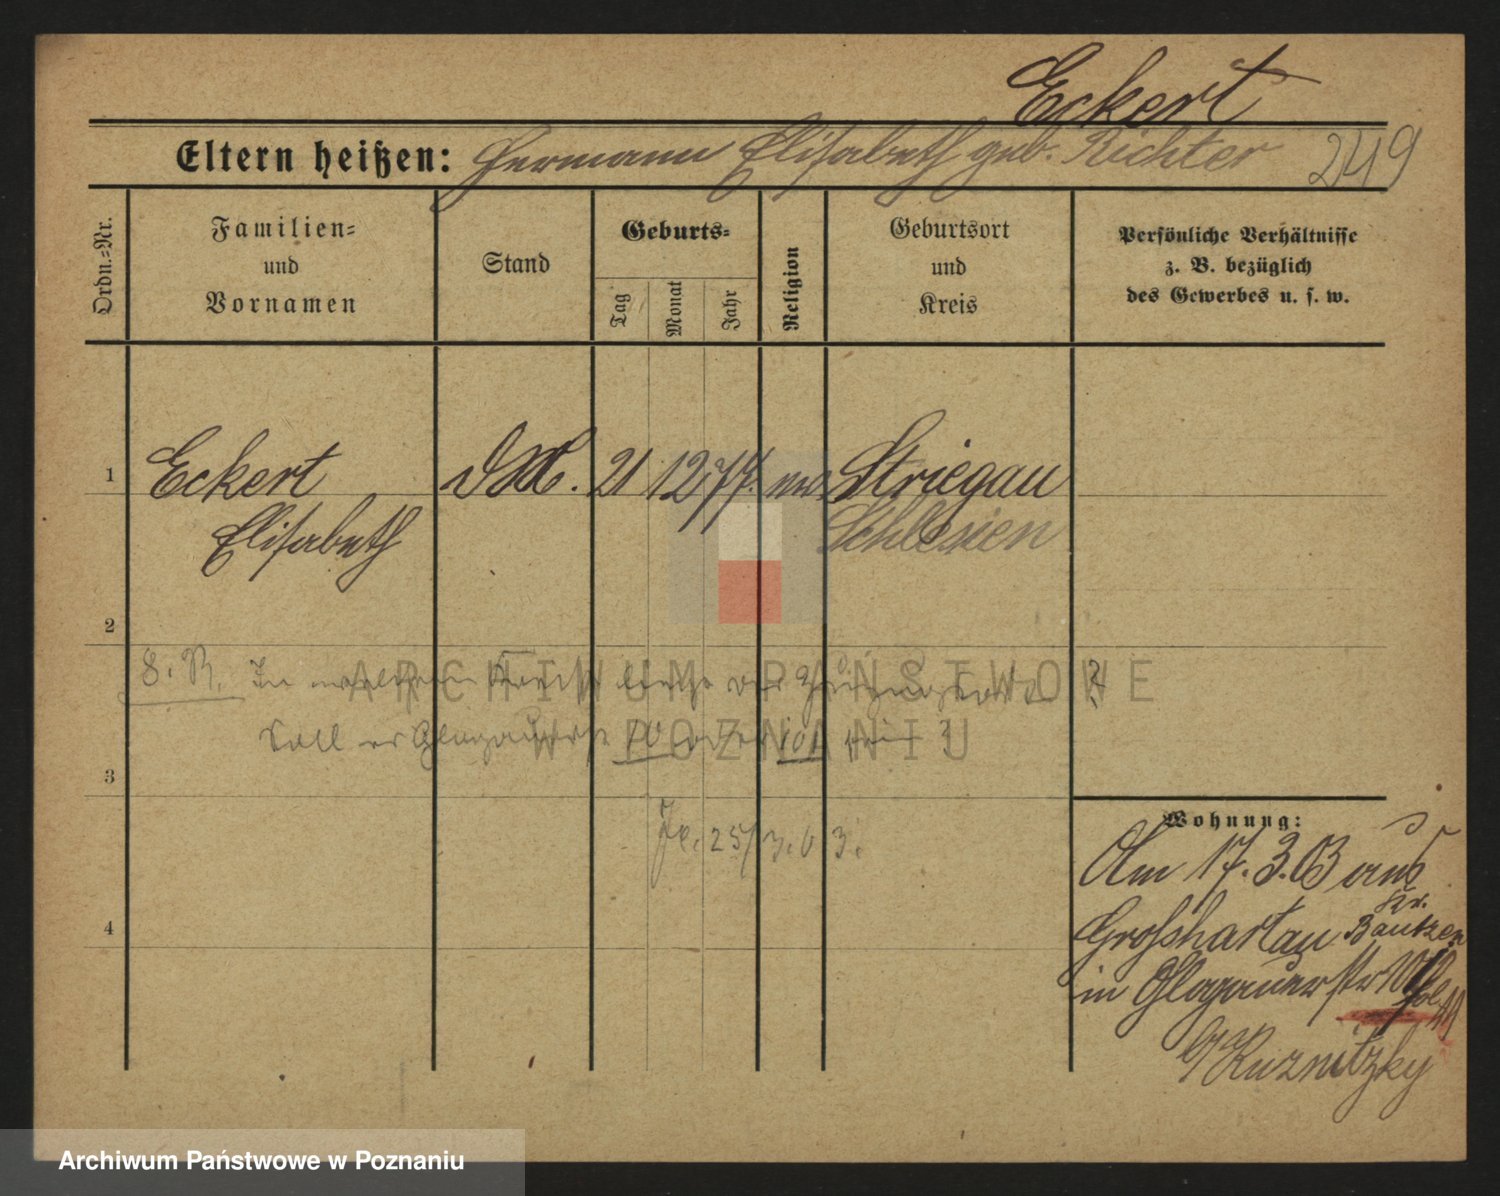 Eckert
Eltern heißen: Hermann Elisabeth geb. Richter 249
Ordn.=Nr.
Familien=
und
Vornamen
Stand
Geburts=
Tag
Monat
Jahr
Religion
Geburtsort
und
Kreis
Persönliche Verhältnisse
z. B. bezüglich
des Gewerbes u. s. w.
1
Eckert 21 12 77. Striegau
Elisabeth Schlesien
2
S. R. In welchem
ARCHIWUM PAŃSTWOWE
Soll es Glogauerstr 10 oder 101 sein?
W POZNANIU
3
25/3.03.
4
Wohnung:
Am 17.3.03 aus
Kr.
Grosshartau Bautzen
in Glogauerstr
b/ Kuznitzky
Archiwum Państwowe w Poznaniu